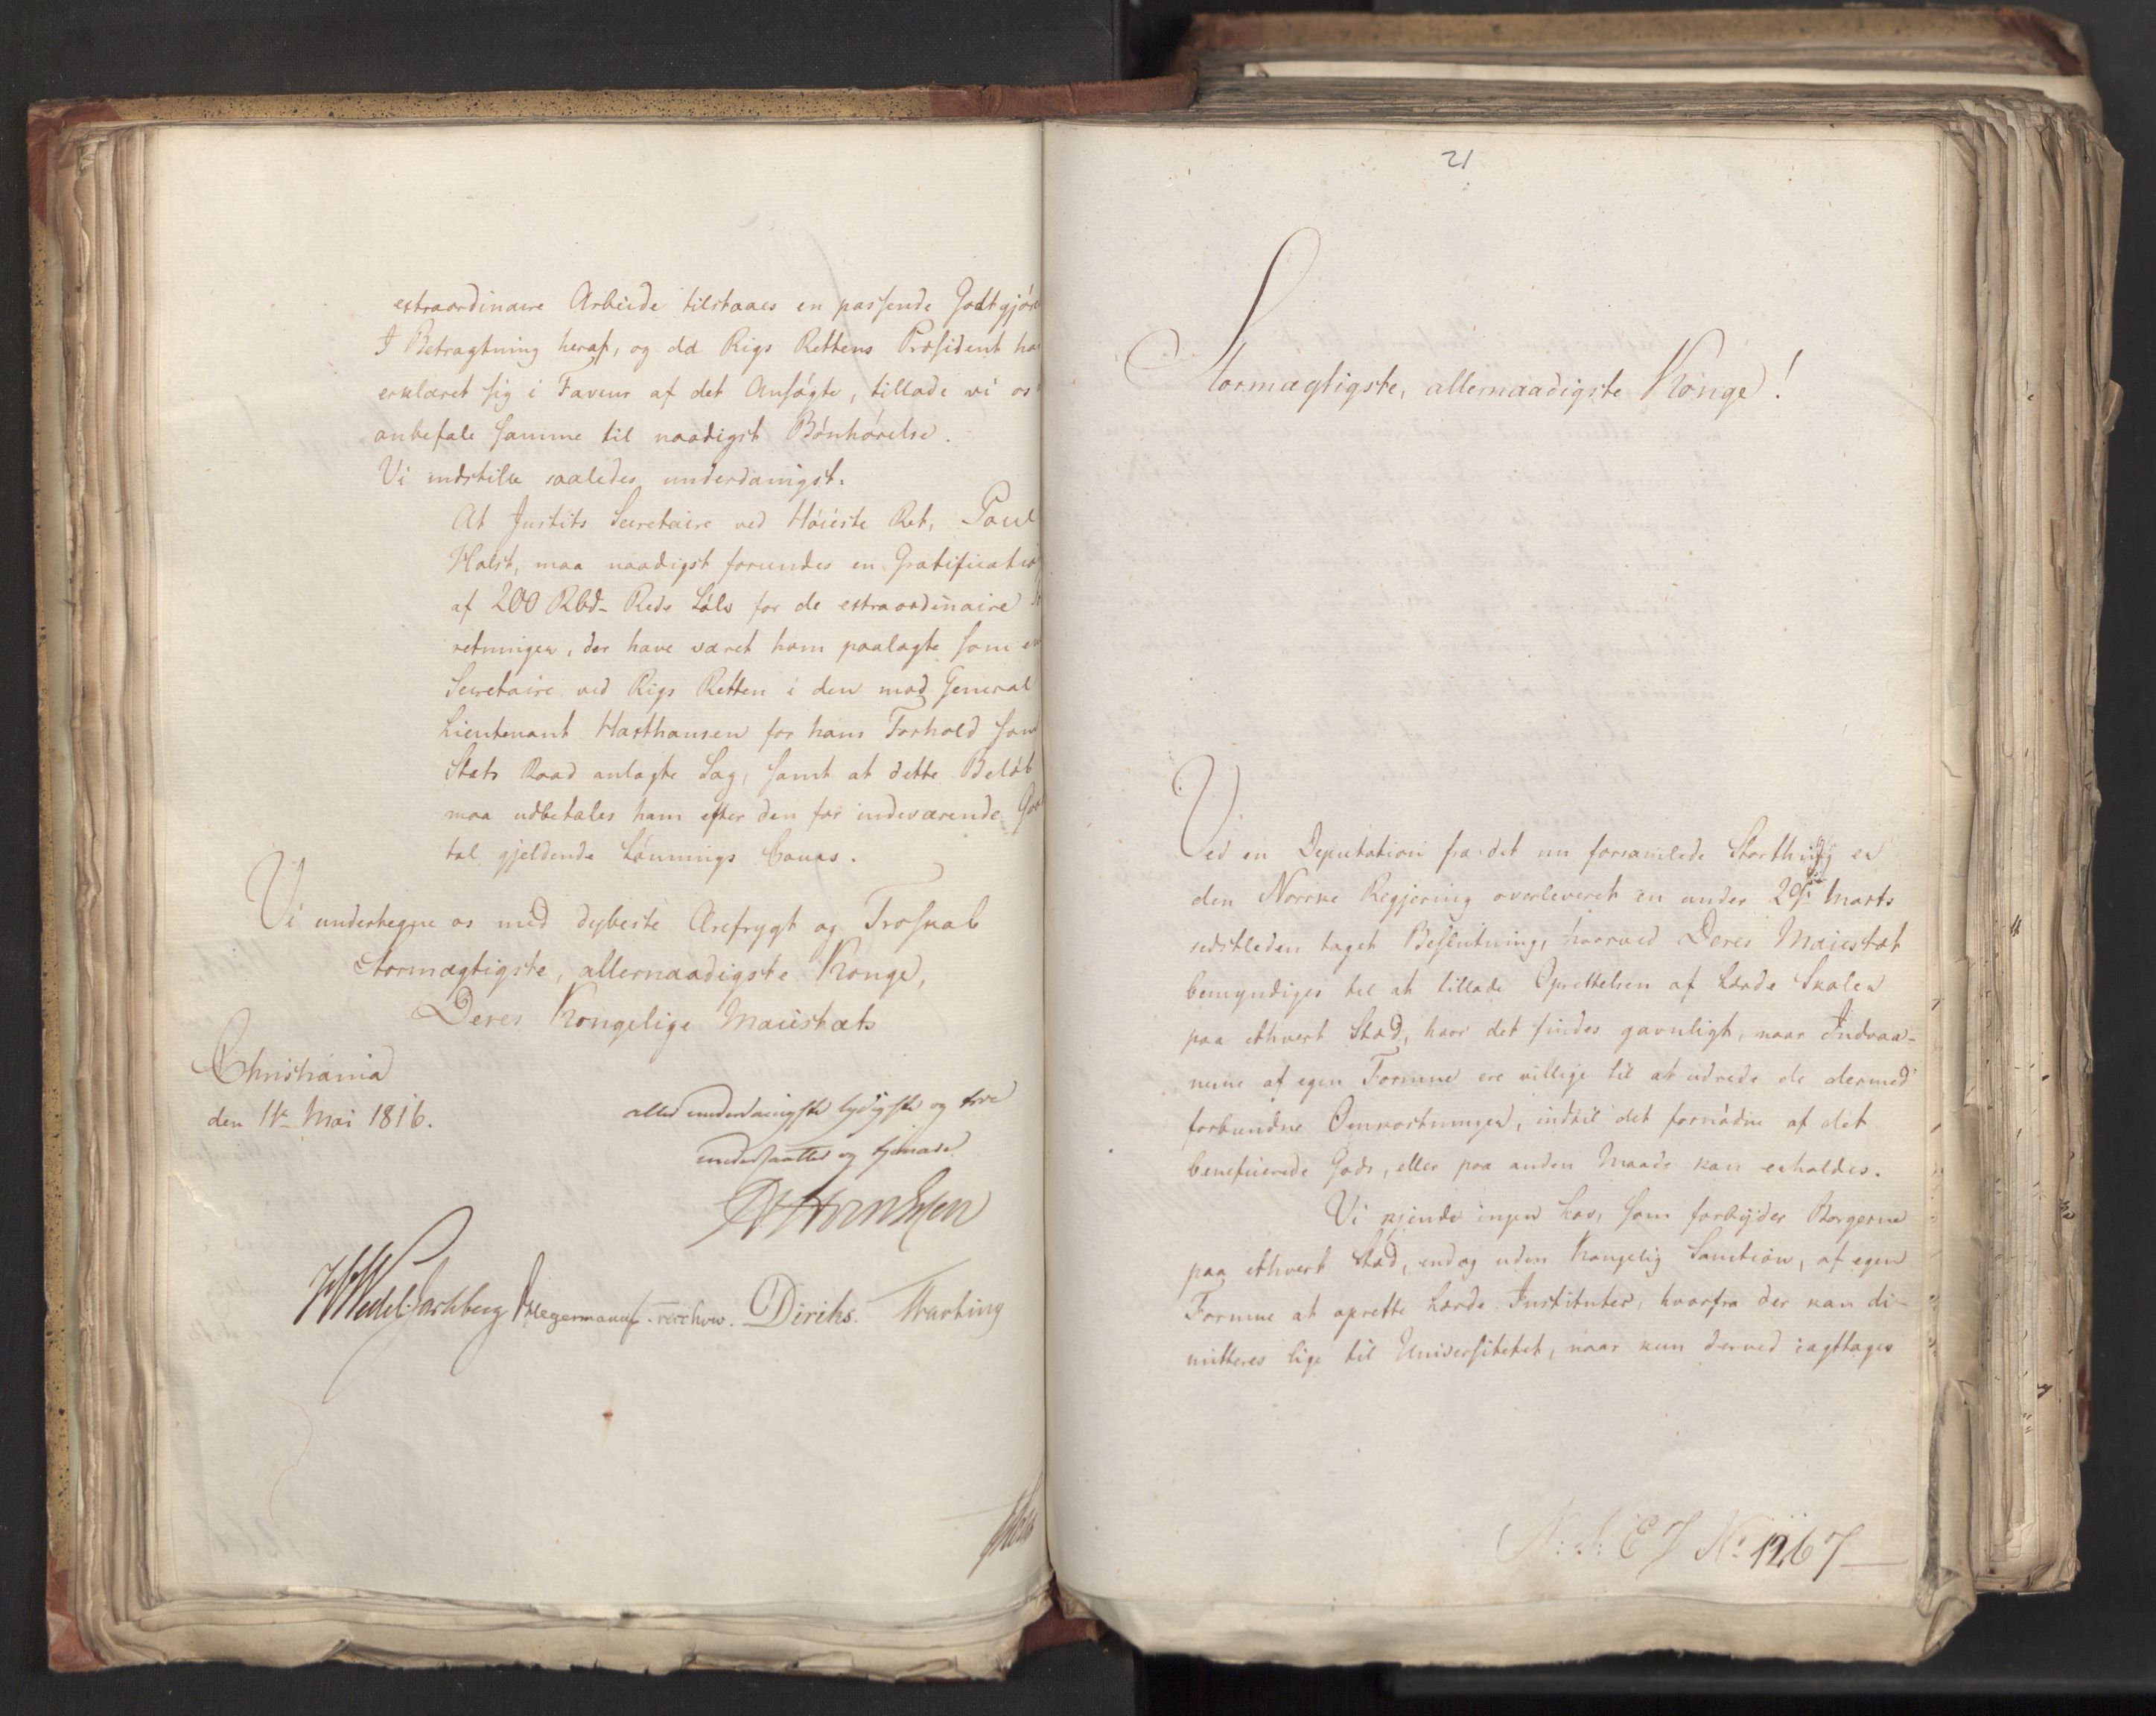 extraordinaire Arbeide tilstaaes en passende Godtgjör
I Betragtning heraf, og da Rigs Rettens Præsident ha
erklæret sig i Faveur af det Ansögte, tillade vi os
anbefale samme til naadigst Bönhörelse.
Vi indstille saaledes underdanigst:
At Justits Secretaire ved Höieste Ret, Paul
Holst, maa naadigst forundes en Gratificatio
af 200 Rbd. Rede Sölv for de extraordinaire
retninger, der have været ham paalagte som
Secretaire ved Rigs Retten i den mod General
Lieutenant Haxthausen for hans Forhold som
Stats Raad anlagte Sag, samt at dette Belöb
maa udbetales ham efter den for indeværende
tal gjeldende Lönnings Cours.
Vi undertegne os med dybeste Ærefrygt og Troskab
Stormægtigste, allernaadigste Konge,
Deres Kongelige Maiestæts
Christiania
den 11te Mai 1816.
allerunderdanigste lydigste og troe
undersaatter og tjenere
Wedel Jarlsberg Hegermann Diriks. Motzfeldt
21
Stormægtigste, allernaadigste Konge!
Ved en Deputation fra det nu forsamlede Storthing er
den Norske Regjering overleveret en under 29de Marts
sidstleden taget Beslutning, hvorved Deres Maiestæt
bemyndiges til at tillade Oprettelsen af Lærde Skoler
paa ethvert Sted, hvor det findes gavnligt, naar Indvaa-
nerne af egen Formue ere villige til at udrede de dermed
forbundne Omkostninger, indtil det fornödne af det
beneficerede Gods, eller paa anden Maade kan erholdes.
Vi kjende ingen Lov, som forbyder Borgerne
paa ethvert Sted, endog uden Kongelig Sanction, af egen
Formue at oprette Lærde Instituter, hvorfra der kan di-
mitteres lige til Universitetet, naar kun derved iagttages
N: S: E J No: 1267